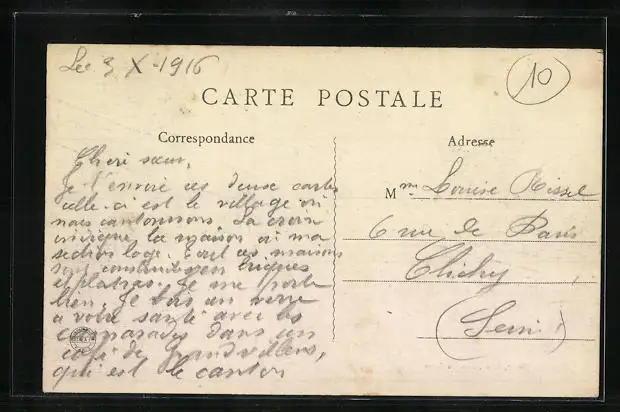 Le 3 X-1916
10
CARTE POSTALE
Correspondance
Cheri sœur,
Je t'envoie ces deuse cartes
celle-ci est le village où
nous cantonnons. La croix
indique la maison où ma
section loge. Tout ces maisons
sont en briques
et platras. Je me porte
bien. Je bois un verre
a votre santé avec les
camarades dans un
café de Grandvillers,
qui est le canton
Adresse
Mme Louise Rissel
6 rue de Paris
Clichy
(Seine)